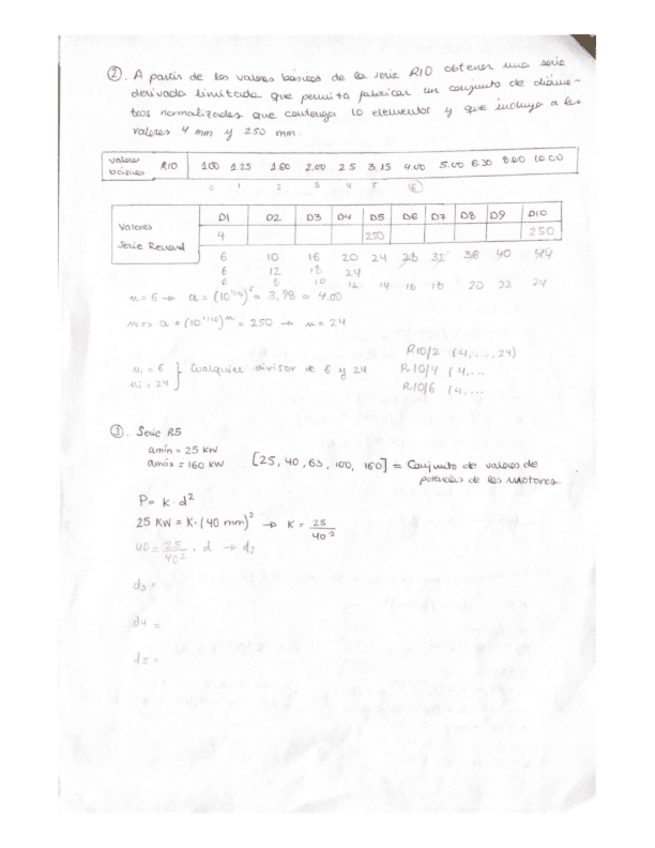 ②. A partir de los valores básicos de la serie R10 obtener una serie
derivada limitada que permita fabricar un conjunto de diáme-
tros normalizados que contenga 10 elementos y que incluya a los
valores 4 mm y 250 mm.
valores básicos R10 1.00 1.25 1.60 2.00 2.5 3.15 4.00 5.00 6.30 8.00 10.00
0 1 2 3 4 5 6
Valores Serie Renard D1 D2 D3 D4 D5 D6 D7 D8 D9 D10
4 250 250
6 10 16 20 24 28 32 36 40 44
6 12 18 24
6 8 10 12 14 16 18 20 22 24
n=6 → a = (10^1/10)^6 = 3.98 ≈ 4.00
a = (10^1/10)^n = 250 → n = 24
R10/2 (4, ... 24)
n₁ = 6 } Cualquier divisor de 6 y 24 R10/4 (4, ...
n₁ = 24 R10/6 (4, ...
③. Serie R5
amín = 25 KW
amáx = 160 KW [25, 40, 63, 100, 160] = Conjunto de valores de
potencias de los motores.
P = K · d²
25 KW = K · (40 mm)² → K = 25/40²
40 = 25/40² · d → d₂
d₃ =
d₄ =
d₅ =